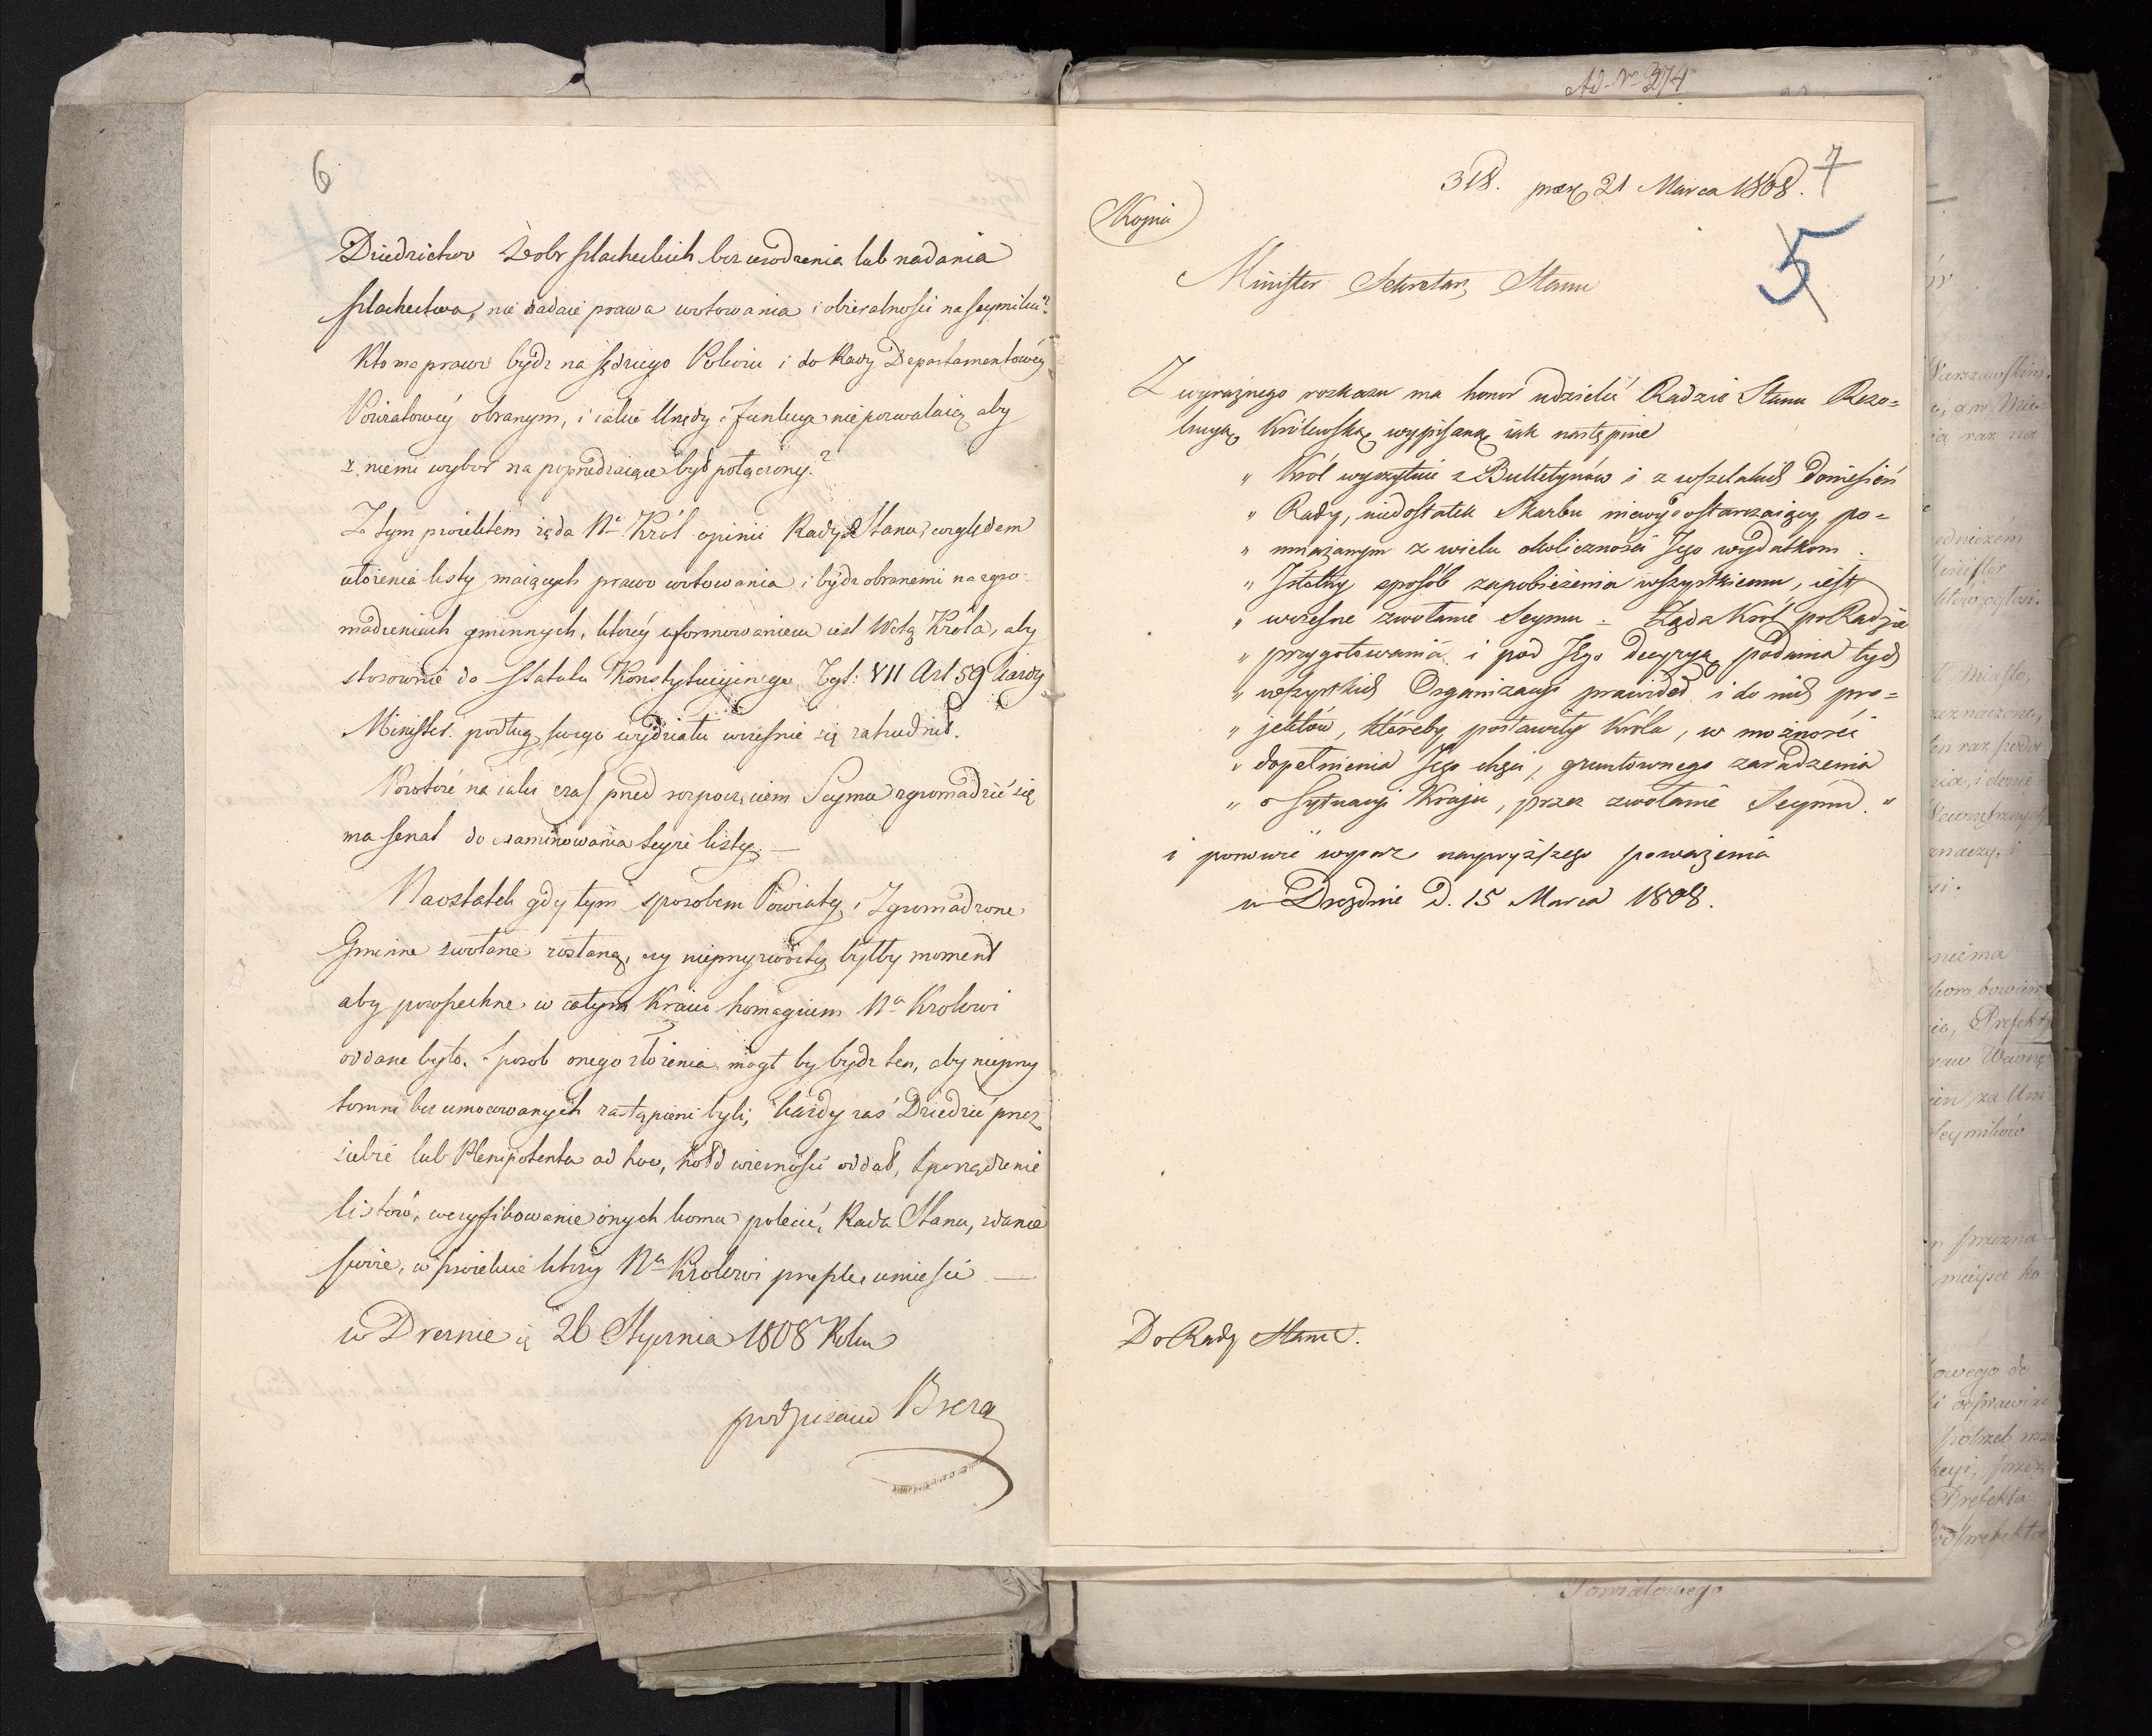 6
Dziedzictwo Dobr szlacheckich bez urodzenia lub nadania
szlachectwa, nie nadaie prawa wotowania i obieralności na Seymiku?
Kto ma prawo bydź na sędziego Pokoiu i do Rady Departamentowéy
Powiatowéy obranym, i iakie Urzędy i Funkcye nie pozwalaią aby
z niemi wybor na poprzedzaiące był połączony?
Z tym proiektem żąda Ny Król opinii Rady Stanu, względem
ułożenia listy maiących prawo wotowania i bydź obranemi na zgro-
madzeniach gminnych, któréy uformowaniem iest Wolą Króla, aby
stosownie do Statutu Konstytucyinego Tyt: VII Art 59 każdy
Minister podług swego wydziału wcześnie się zatrudnił.
Powtóre na iaki czas przed rozpoczęciem Seymu zgromadzić się
ma Senat do examinowania teyże listy. —
Naostatek gdy tym sposobem Powiaty i Zgromadzone
Gminne zwołane zostaną, czy nieprzyzwoity byłby moment
aby powszechne w całym Kraiu homagium Nu Krolowi
oddane było. Sposob onego złożenia mogł by bydź ten, aby nieprzy
tomni bez umocowanych zastąpieni byli, każdy zaś Dziedzic przez
siebie lub Plenipotenta ad hoc, hołd wierności oddał, sporządzenie
listów, weryfikowanie onych komu polecić, Rada Stanu, zdanie
swoie, w proiekcie który Nu Krolowi przeszle, umieści —
w Dreznie d. 26 Stycznia 1808 Roku
podpisano Breza
Ad Nr 374
318. prez 21 Marca 1808. 7
Kopia
5
Minister Sekretarz Stanu
Z wyraźnego rozkazu ma honor udzielić Radzie Stanu Rezo=
lucyą Królewską wypisaną iak następuie
" Król wyczytuie z Bulletynów i z wszelakich doniesień
" Rady, niedostatek Skarbu niewydostarczaiący, po=
" mnażanym z wielu okoliczności Jego wydatkom.
" Istotny sposób zapobieżenia wszystkiemu, iest
" wczesne zwołanie Seymu. Żąda Król po Radzie
" przygotowania i pod Jego decyzyą podania tych
" wszystkich Organizacyi prawideł i do nich pro=
" jektów, któreby postawiły Króla, w możności
" dopełnienia Jego chęci, gruntownego zaradzenia
" o sytuacyi Kraju, przez zwołanie Seymu. "
i ponowić wyraz naywyższego poważenia
w Dreznie D. 15 Marca 1808.
Do Rady Stanu.
Powiatowego